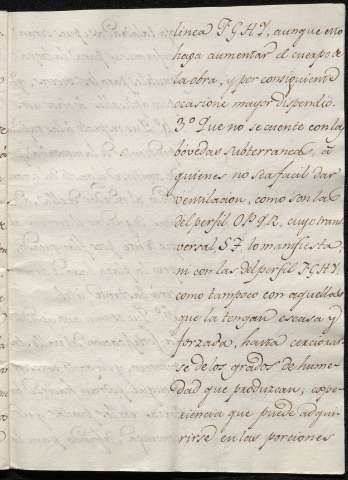 linea F.G.H.Y, aunque esto
haga aumentar el cuerpo de
la obra, y por consiguiente
ocasione mayor dispendio.
3.º Que no se cuente con las
bóvedas subterraneas, á
quienes no sea facil dar
ventilacion, como son las
del perfil O.P.Q.R, cuyo trans
versal S.Z. lo manifiesta,
ni con las del perfil F.G.H.Y.
como tampoco con aquellas
que la tengan escasa y
forzada, hasta cerciorar-
se de los grados de hume
dad que produzcan; expe-
riencia que puede adqui
rirse en las porciones